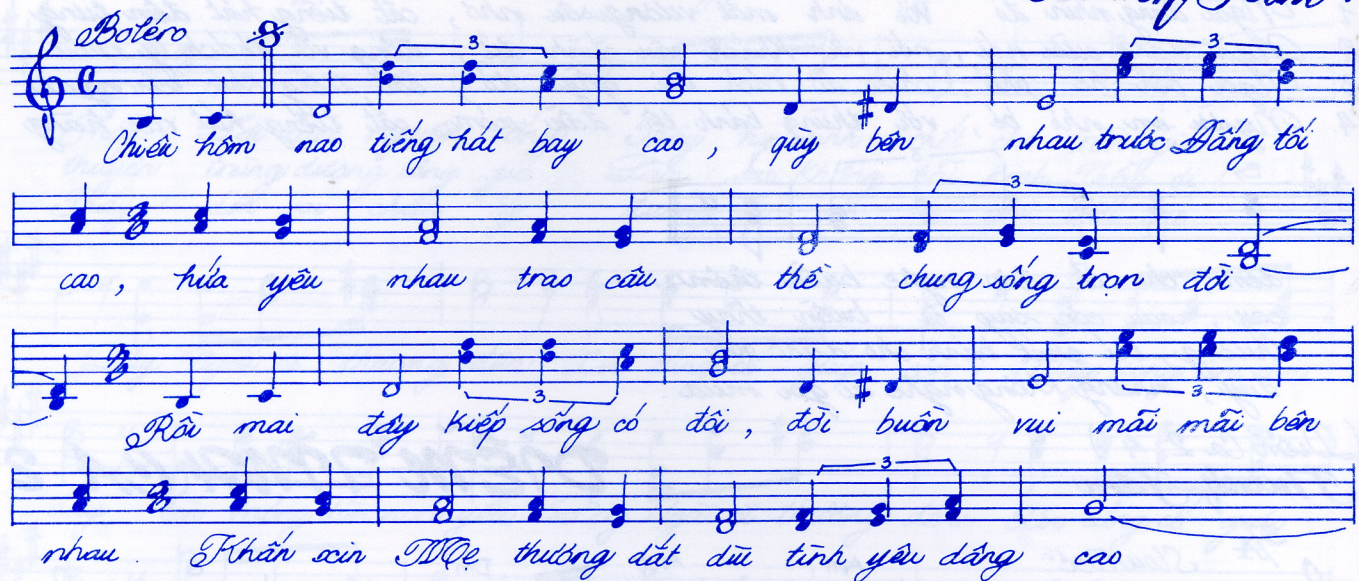 Boléro
Chiều hôm nao tiếng hát bay cao, quỳ bên nhau trước Đấng tối
cao, hứa yêu nhau trao câu thề chung sống trọn đời
Rồi mai đây kiếp sống có đôi, đời buồn vui mãi mãi bên
nhau. Khấn xin Mẹ thương dắt dìu tình yêu dâng cao